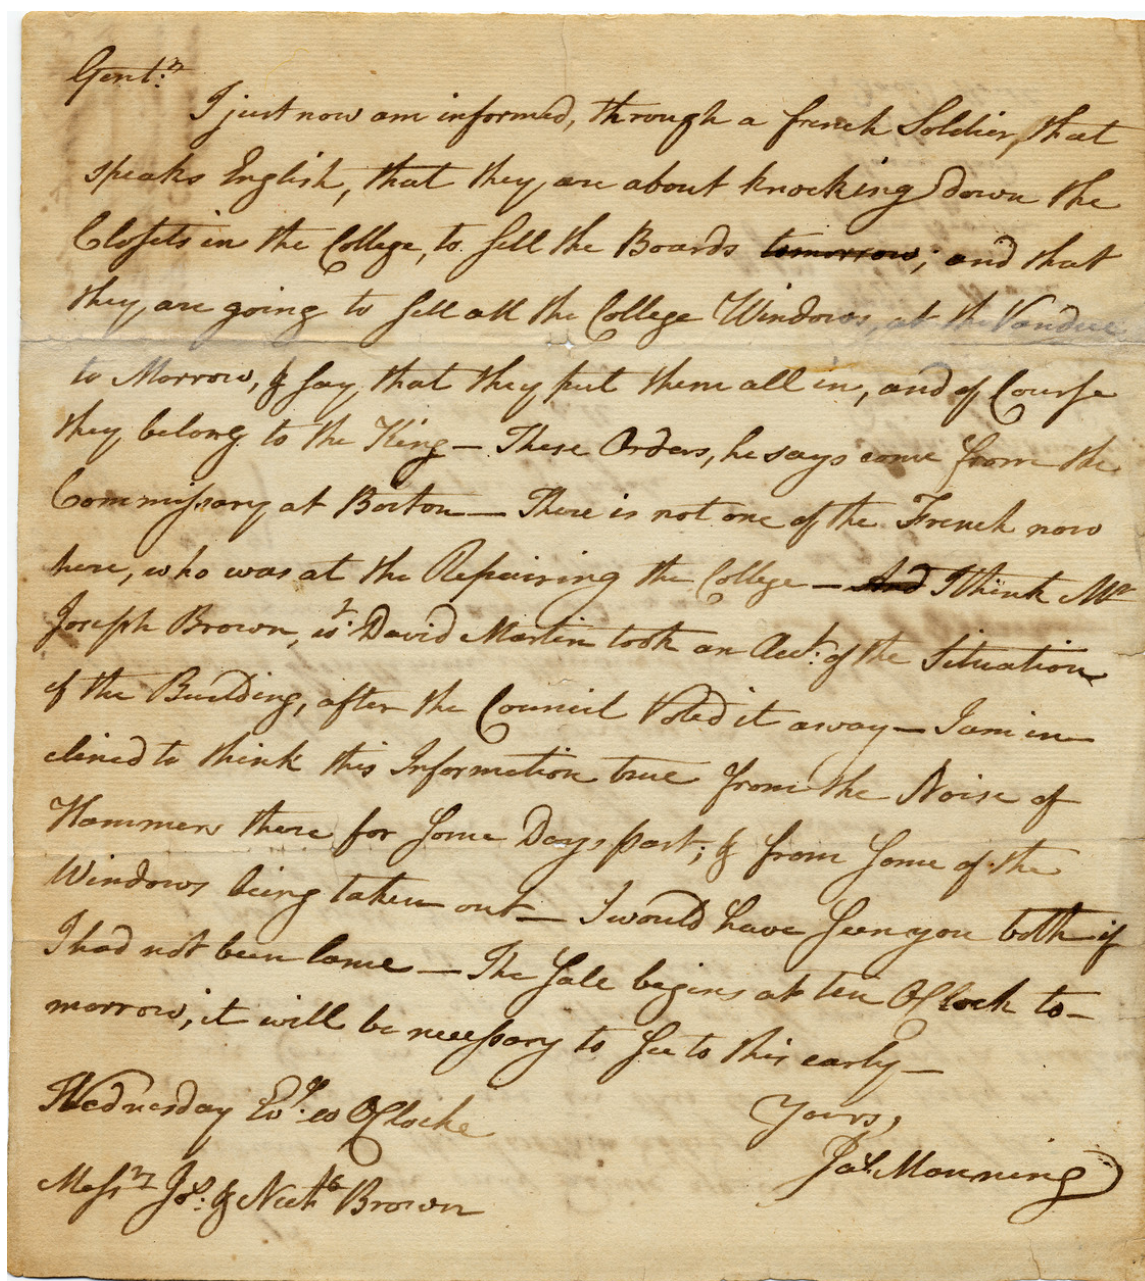 Gent:n
I just now am informed, through a french Soldier, that
speaks English, that they are about knocking down the
Closets in the College, to sell the Boards tomorrow; and that
they are going to sell all the College Windows, at the Vandue
to Morrow, & say that they put them all in, and of Course
they belong to the King — These Orders, he says come from the
Commissary at Boston — There is not one of the French now
here, who was at the Repairing the College — And I think Mr
Joseph Brown, David Martin took an Acct. of the Situation
of the Building, after the Council Voted it away — I am in-
clined to think this Information true from the Noise of
Hammers there for some Days past; & from some of the
Windows being taken out — I would have seen you both if
I had not been lame — The Sale begins at ten O Clock to-
morrow, it will be necessary to see to this early —
Wednesday Evg. O Clocke
Yours,
Jas. Manning
Messrs Jos. & Nichs Brown